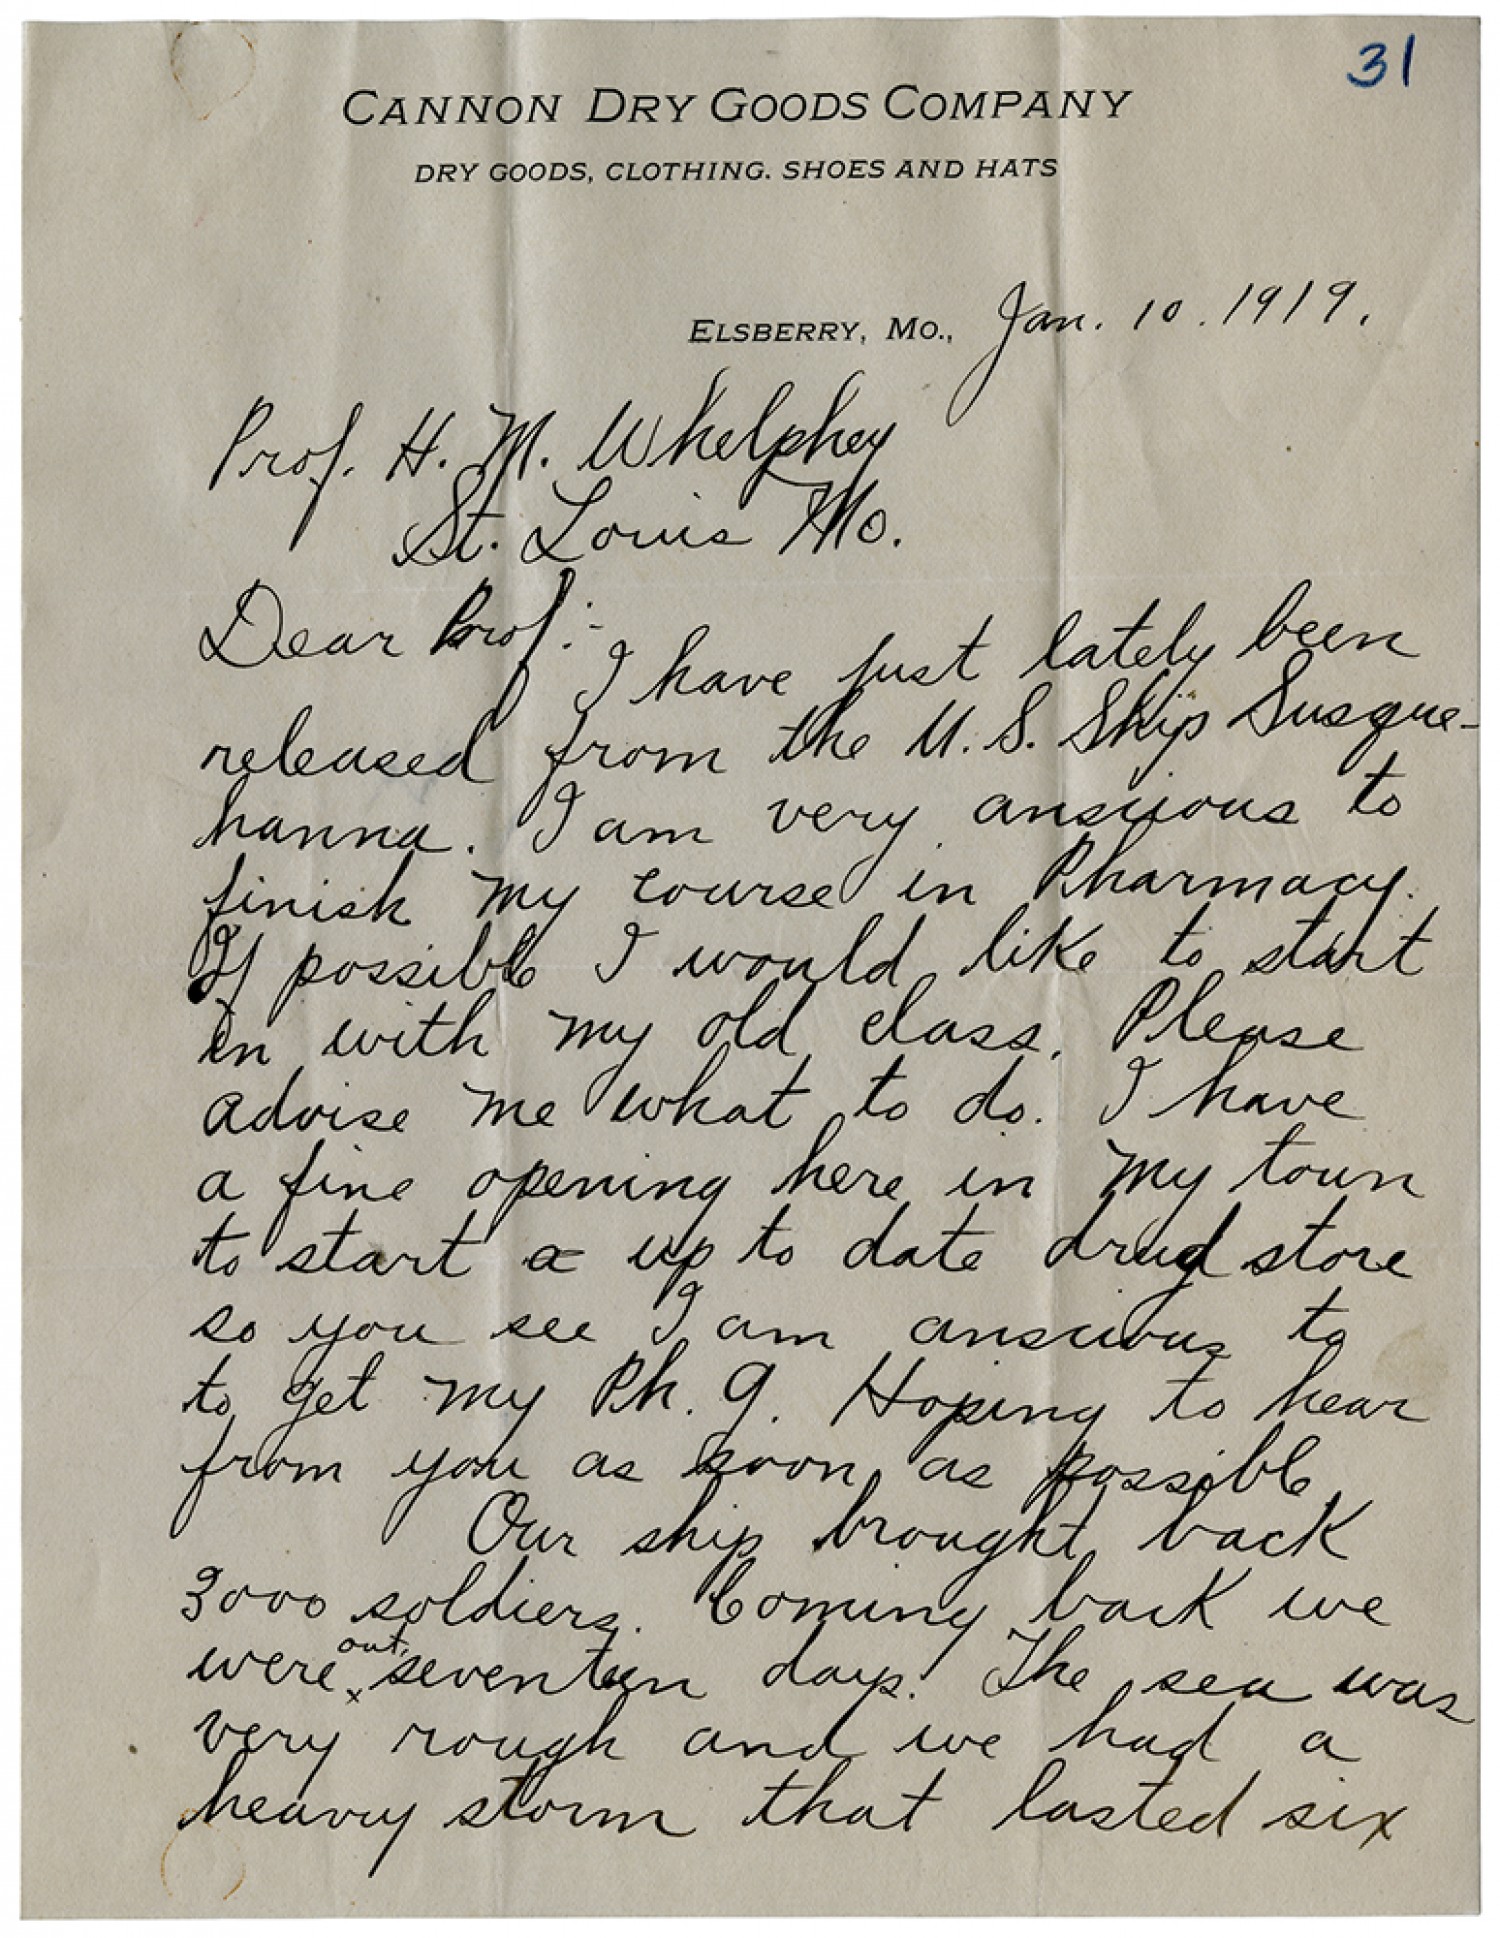 31
CANNON DRY GOODS COMPANY
DRY GOODS, CLOTHING. SHOES AND HATS
ELSBERRY, MO., Jan. 10. 1919.
Prof. H. M. Whelphey
St. Louis Mo.
Dear Prof:-
I have just lately been
released from the U. S. Ship Susque-
hanna. I am very anxious to
finish my course in Pharmacy.
If possible I would like to start
in with my old class. Please
advise me what to do. I have
a fine opening here in my town
to start a up to date drug store
so you see I am anxious to
to get my Ph. G. Hoping to hear
from you as soon as possible.
Our ship brought back
3000 soldiers. Coming back we
were out seventeen days. The sea was
very rough and we had a
heavy storm that lasted six